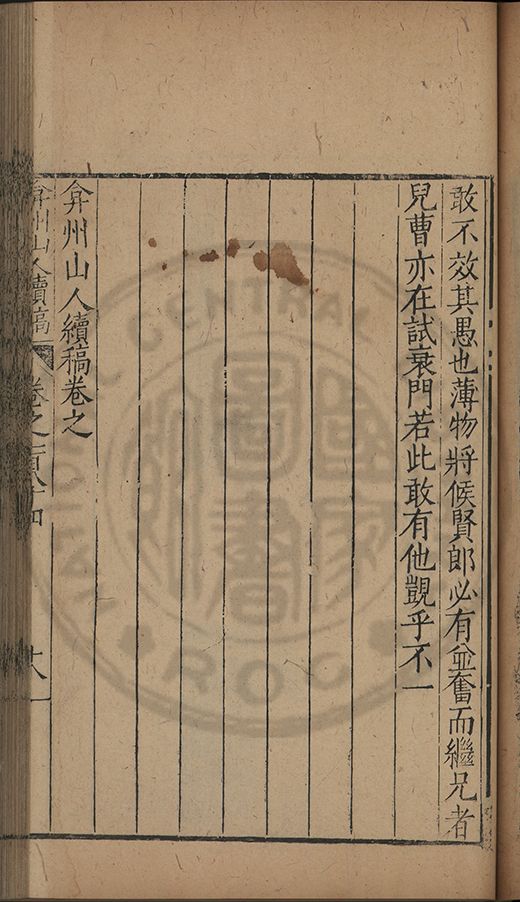 敢不效其愚也薄物將候賢郎必有並奮而繼兄者
兒曹亦在試衰門若此敢有他覬乎不一
弇州山人續稿卷之
弇州山人續稿
卷之一百八十四
十八
CENTRAL
ROC